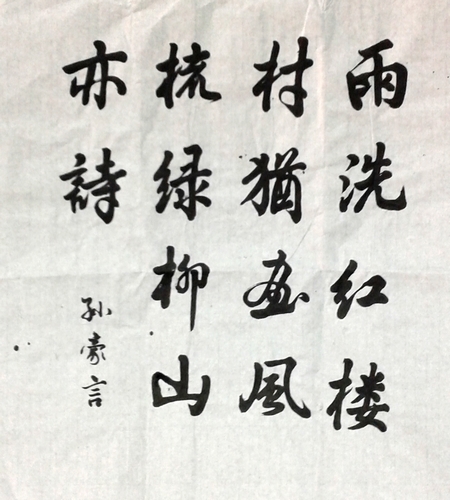 雨洗红楼
村猶畫風
梳绿柳山
亦詩
孙豪言